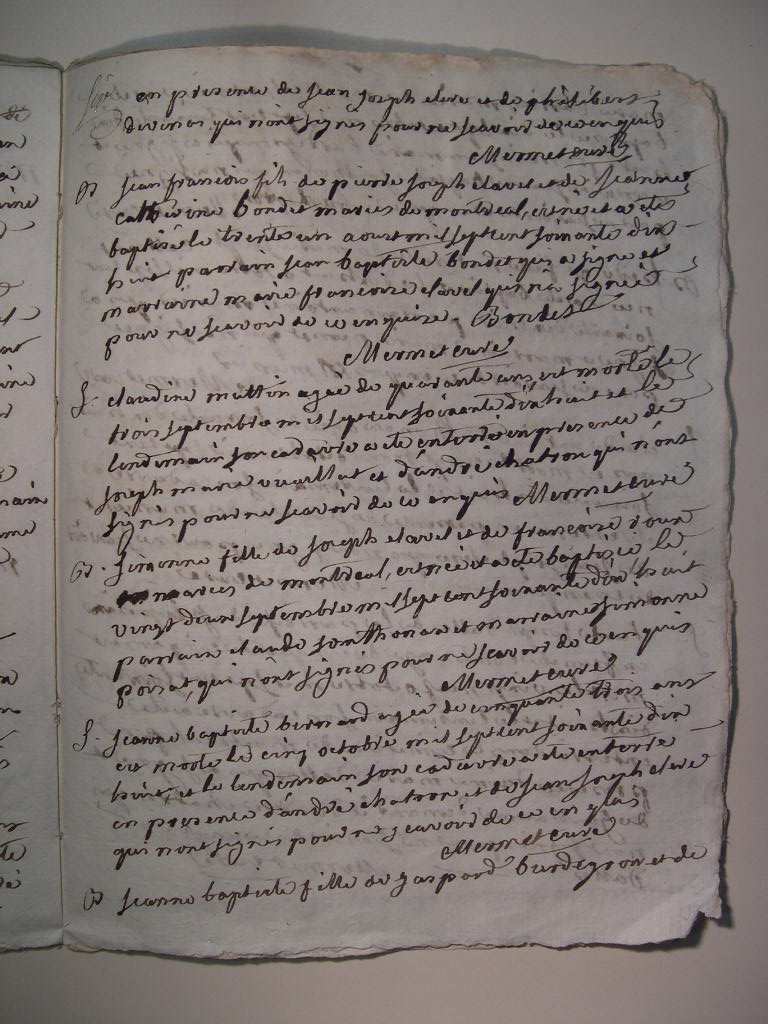 en presence de jean joseph clere et de philibert
qui n'ont signes pour ne scavoir de ce enquis
Mermet curé
B jean francois fils de pierre joseph clavel et de jeanne
catherine bondet maries de montreal, est né et a eté
baptisé le trente un aoust mil sept cent soixante dix
huit parrain jean baptiste bondet qui a signe et
marraine marie francoise clavel qui n'a signée
pour ne scavoir de ce enquise. Bondet
Mermet curé
S. claudine mettin agée de quarante ans est morte le
trois septembre mil sept cent soixante dix huit et le
lendemain son cadavre a eté enterré en presence de
joseph marie vuaillat et d'andré chatron qui n'ont
signes pour ne scavoir de ce enquis Mermet curé
B. simonne fille de joseph clavel et de francoise
maries de montreal, est née et a eté baptisée le
vingt deux septembre mil sept cent soixante dix huit
parrain claude et marraine simonne
poisat, qui n'ont signes pour ne scavoir de ce enquis
Mermet curé
S. jeanne baptiste bernard agée de cinquante trois ans
est morte le cinq octobre mil sept cent soixante dix
huit, et le lendemain son cadavre a eté enterré
en presence d'andré chatron et de jean joseph clere
qui n'ont signes pour ne scavoir de ce enquis
Mermet curé
B jeanne baptiste fille de gaspard et de